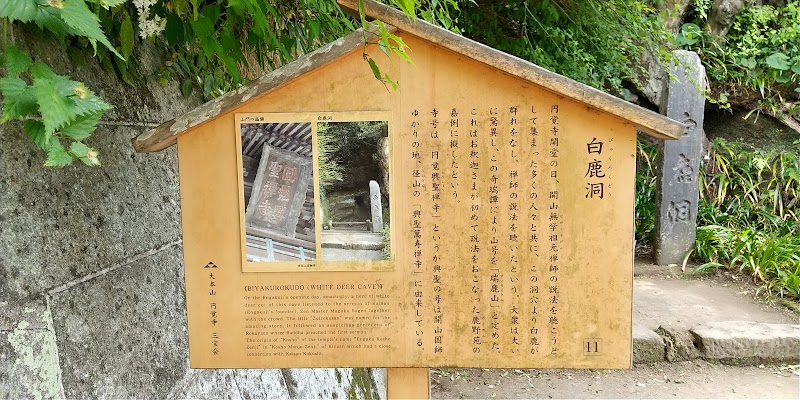 白鹿洞
びゃくろくどう
円覚寺開堂の日、開山無学祖元禅師の説法を聴こうと
して集まった多くの人々と共に、この洞穴より白鹿が
群れをなし、禅師の説法を聴いたという。大衆は大い
に驚異し、この奇瑞譚により山号を「瑞鹿山」と定めた。
これはお釈迦さまが初めて説法をおこなった鹿野苑の
嘉例に擬したという
寺号は「円覚興聖禅寺」というが興聖の号は開山国師
ゆかりの地、径山の「興聖萬寿禅寺」に由来している。
山門の扁額
白鹿洞
(BYAKUROKUDO (WHITE DEER CAVE))
On the Engakuji's opening day, amazingly, a herd of white
deer out of this cave listened to the sermon of
(Engakuji's founder), Zen Master Mugaku Sogen together
with the crowd. The title "Zuirokuzan" was named for the
amazing story. It followed an auspicious
where Buddha preached his first sermon.
The origin of "Kosho" of the temple's name "Engaku Kosho
Zenji" is "Kosho Manju Zenji" of Kinzan which had a close
connection with Kaisan Kokushi.
大本山 円覚寺 三宝会
11
白鹿洞